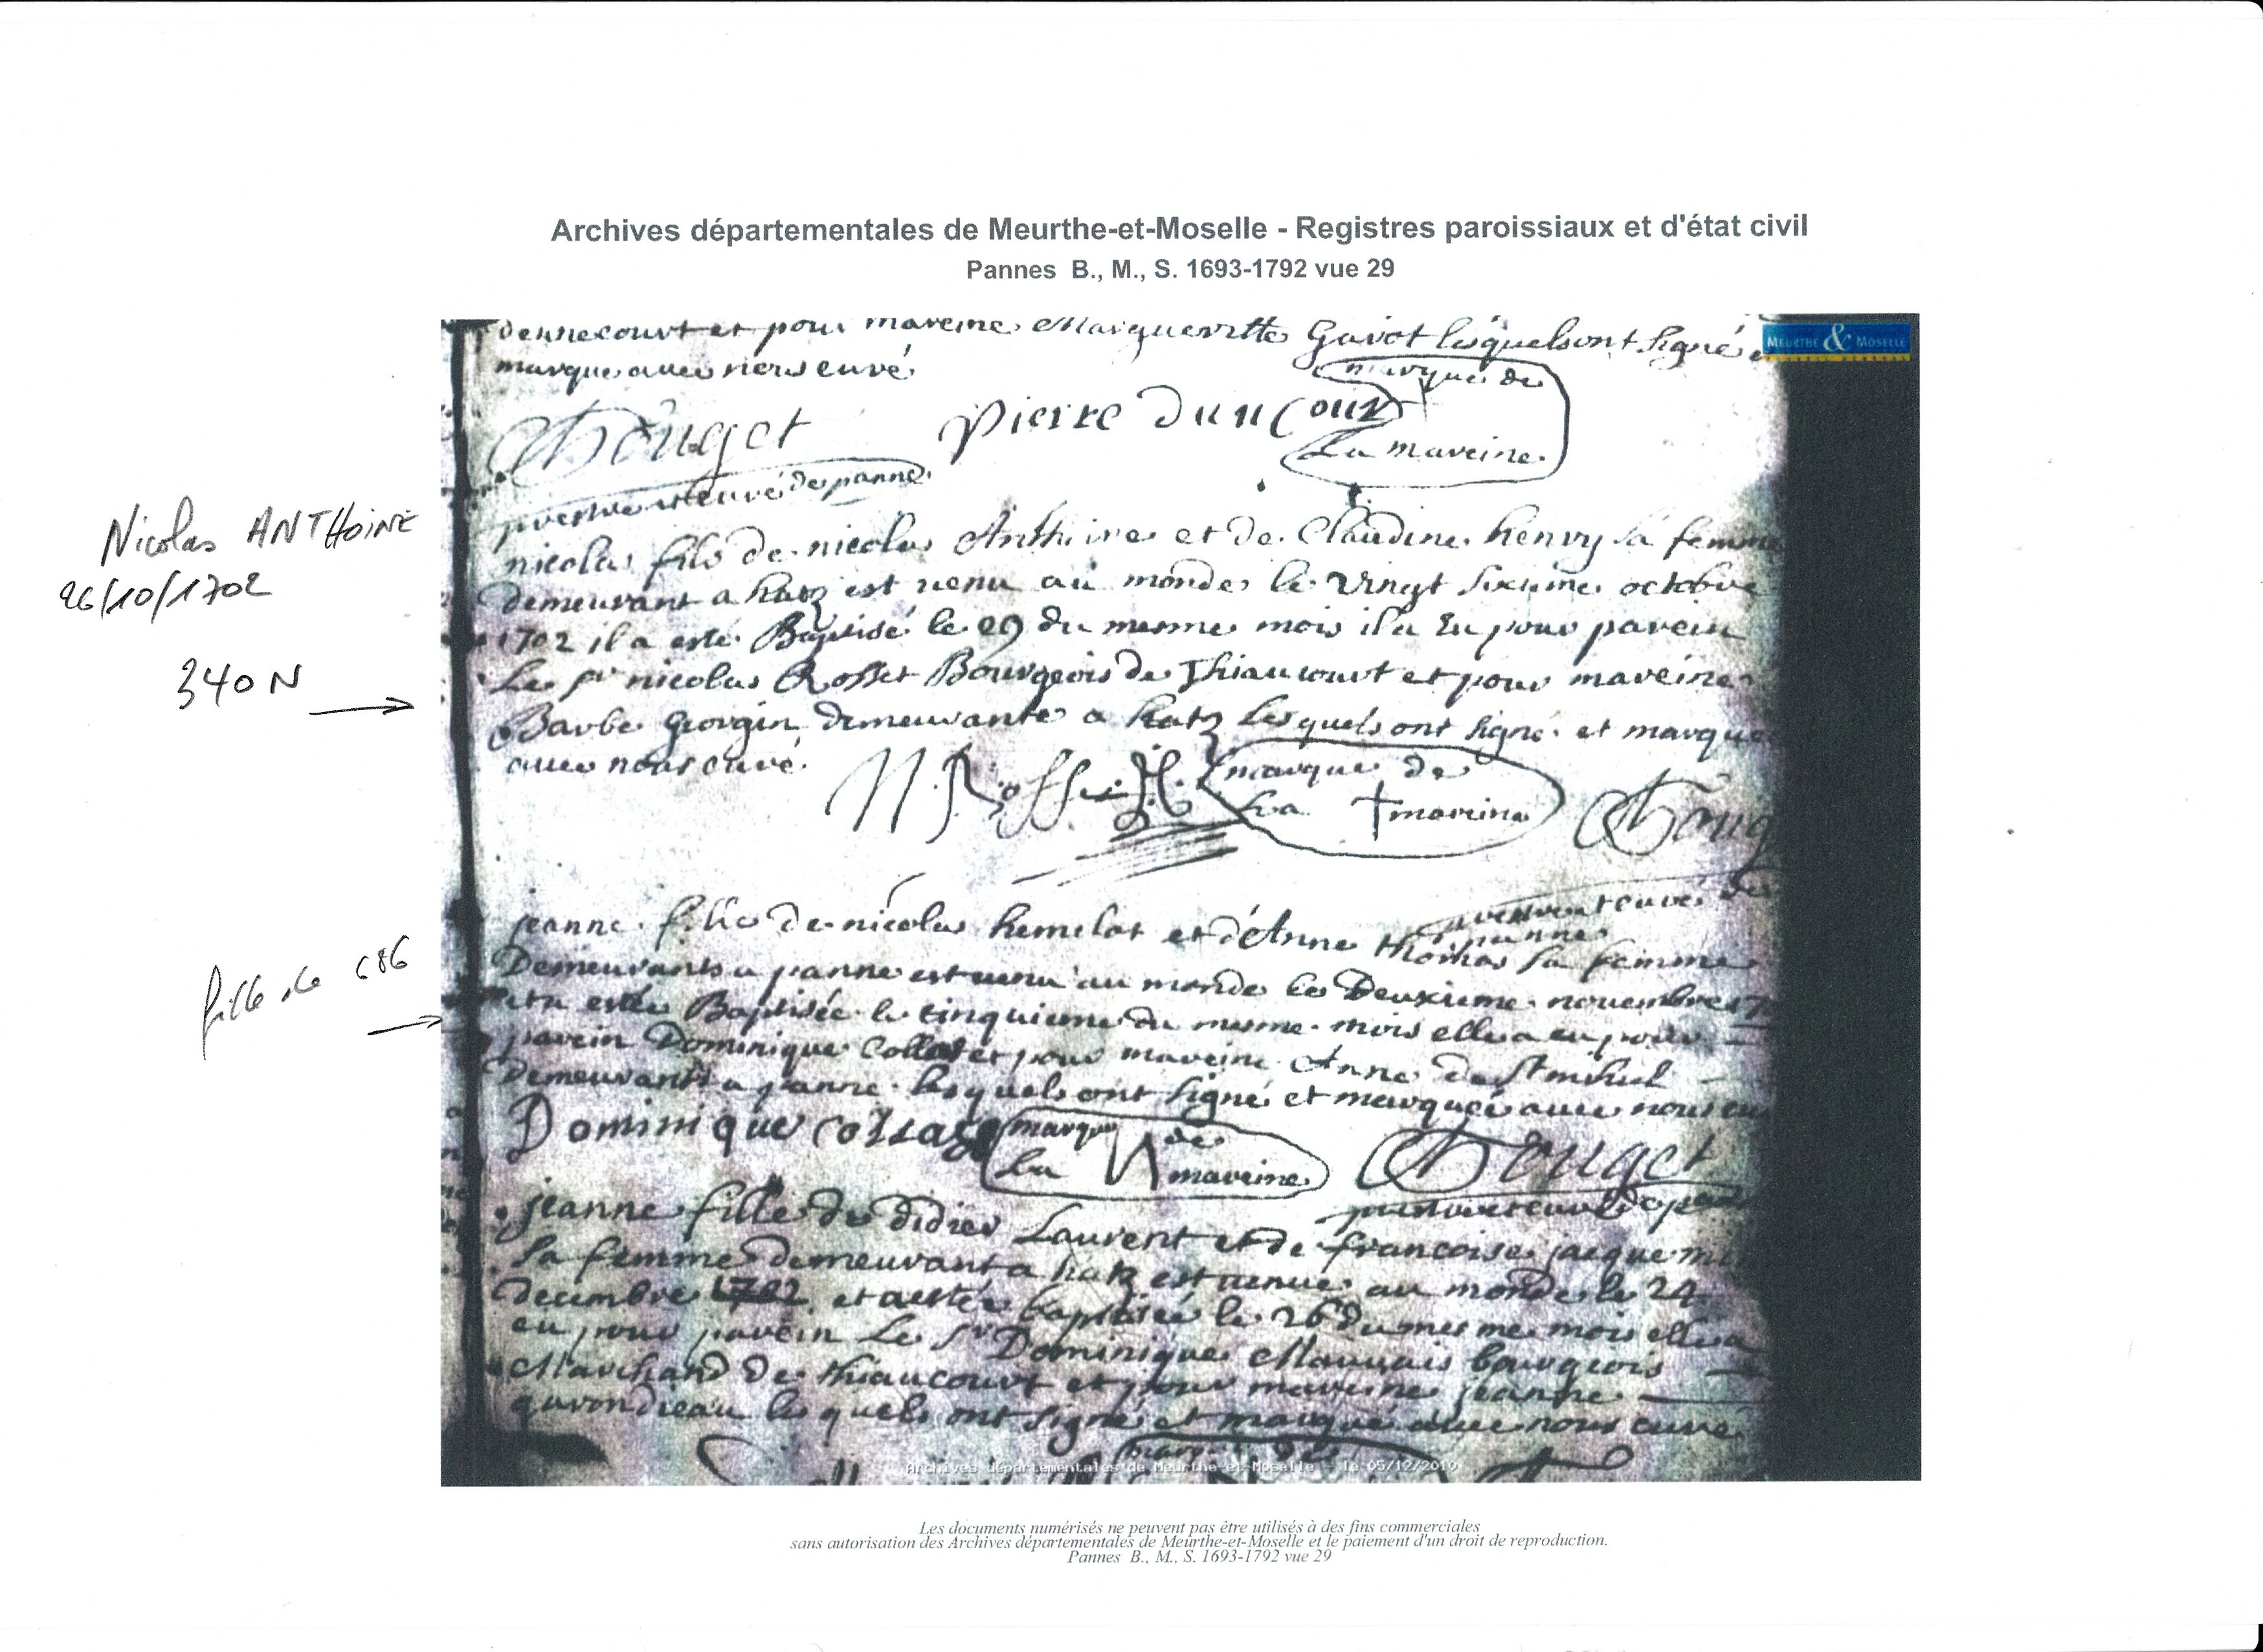 Archives départementales de Meurthe-et-Moselle - Registres paroissiaux et d'état civil
Pannes B., M., S. 1693-1792 vue 29
MEURTHE & MOSELLE
et pour mareine Margueritte Gavot lesquels ont signé
marque avec nous curé
Pierre dun Cour
marque de
La mareine
de panne
Nicolas ANTHOINE
26/10/1702
340 N
nicolas fils de nicolas Anthoine et de Claudine henry sa femme
demeurant a est venu au monde le vingt sixieme octobre
1702 il a esté Baptisé le 29 du mesme mois il a Eu pour parein
Le Sr nicolas Rosset Bourgeois de Thiaucourt et pour mareine
Barbe Georgin demeurante a lesquels ont signé et marque
avec nous curé
N. Rosset
marque de
La mareine
fille de 686
jeanne fille de nicolas hemelot et d'Anne thomas sa femme
Demeurants a panne est venu au monde le Deuxieme novembre
Baptisée le cinquieme du mesme mois elle a eu pour
parein Dominique Collot et pour mareine Anne de St mihiel
Demeurants a panne lesquels ont signé et marqué avec nous
Dominique
marque de
La mareine
jeanne fille de didier Laurent et de francoise jacque
sa femme demeurant a est venue au monde le 24
decembre 1702 et a esté baptisée le 26 du mesme mois elle a
eu pour parein Le Sr Dominique Mauvais bourgeois
Marchand de thiaucourt et pour mareine jeanne
lesquels ont signé et marqué avec nous curé
Archives départementales de Meurthe-et-Moselle - le 05/12/2010
Les documents numérisés ne peuvent pas être utilisés à des fins commerciales
sans autorisation des Archives départementales de Meurthe-et-Moselle et le paiement d'un droit de reproduction.
Pannes B., M., S. 1693-1792 vue 29